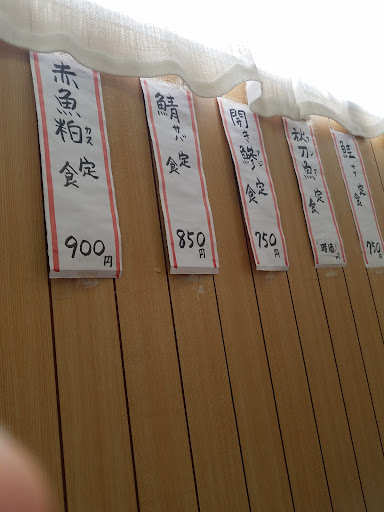 赤魚粕カス定食
900円
鯖サバ定食
850円
開き鯵定食
750円
秋刀魚定食
時価
鮭サケ定食
750